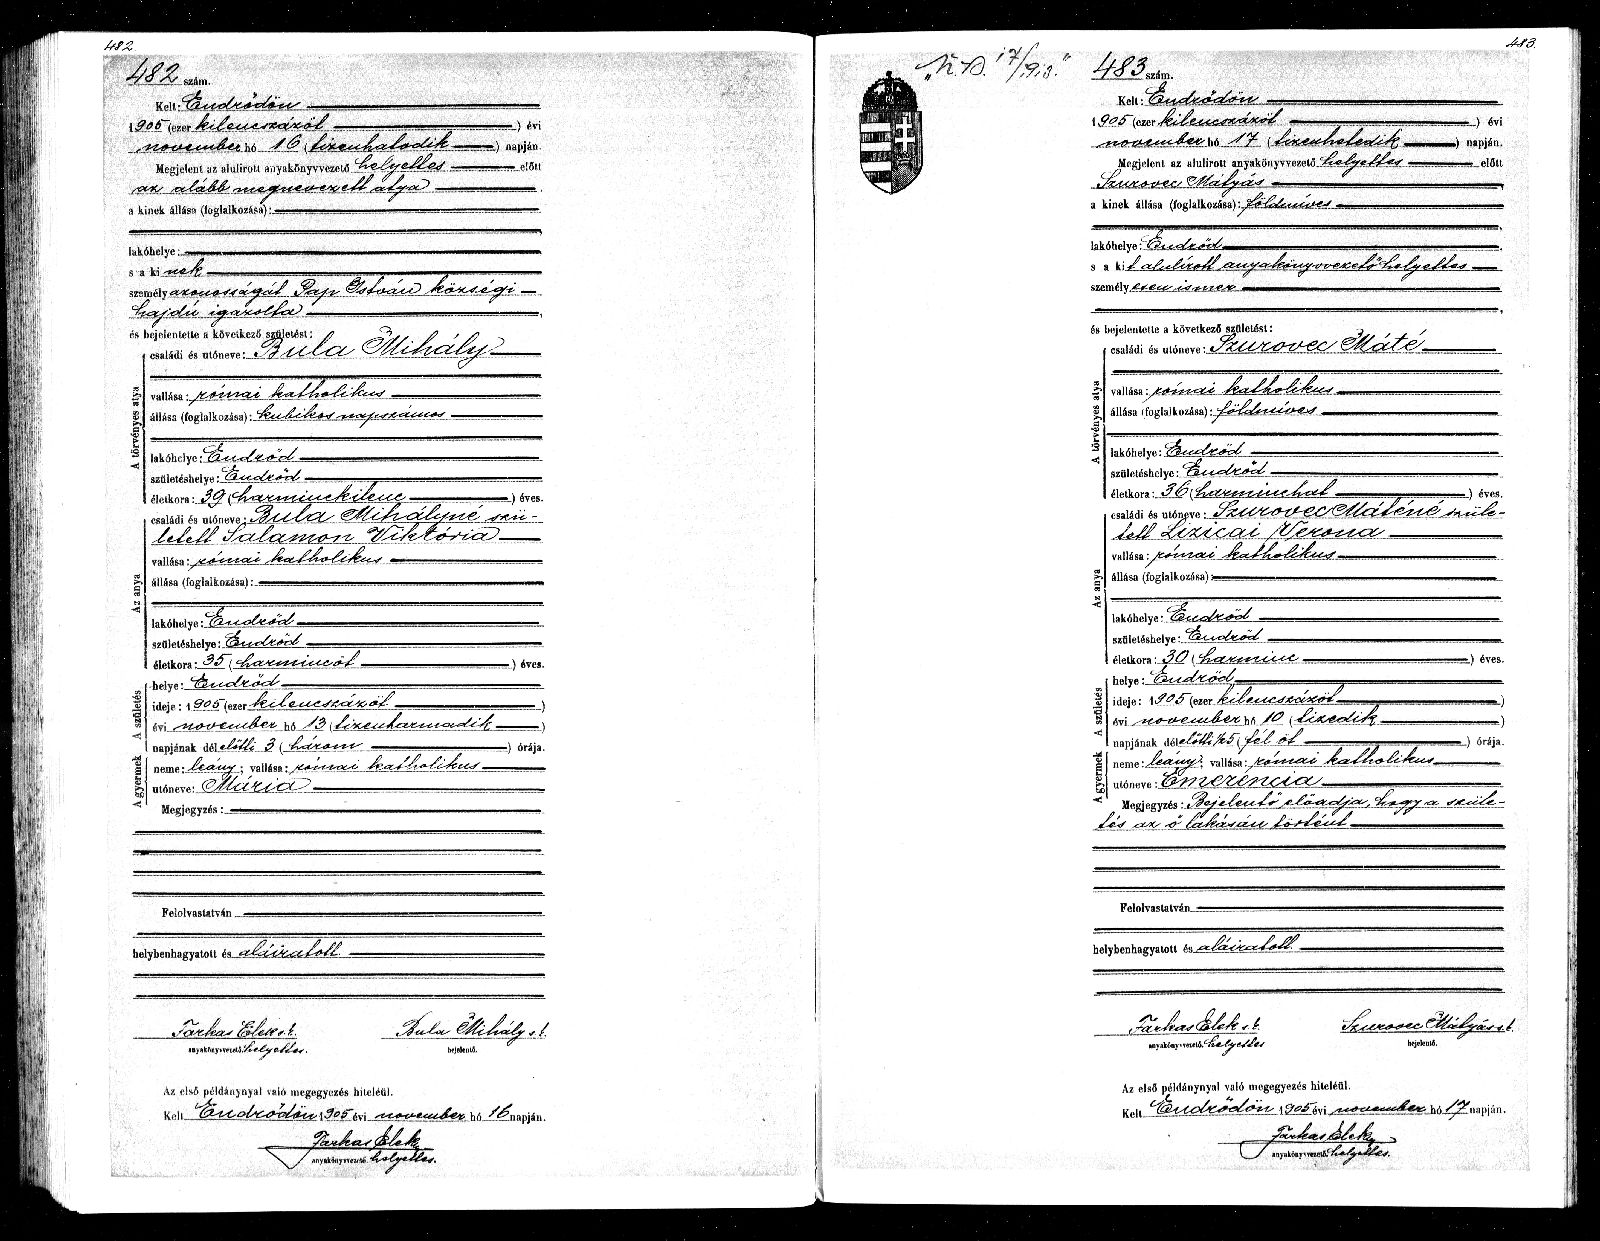 482
482 szám.
Kelt: Endrődön
1905 (ezer kilencszázöt ) évi
november hó 16 (tizenhatodik ) napján.
Megjelent az alulirott anyakönyvvezető helyettes előtt
az alább megnevezett atya
a kinek állása (foglalkozása):
lakóhelye:
s a ki nek
személy azonosságát Pap István községi
hajdú igazolta
és bejelentette a következő születést:
A törvényes atya
családi és utóneve: Bula Mihály
vallása: római katholikus
állása (foglalkozása): kubikos napszámos
lakóhelye: Endrőd
születéshelye: Endrőd
életkora: 39 (harminckilenc ) éves.
Az anya
családi és utóneve: Bula Mihályné szü-
letett Salamon Viktória
vallása: római katholikus
állása (foglalkozása):
lakóhelye: Endrőd
születéshelye: Endrőd
életkora: 35 (harmincöt ) éves.
A születés
helye: Endrőd
ideje: 1905 (ezer kilencszázöt )
évi november hó 13 (tizenharmadik )
napjának dél előtti 3 (három ) órája.
A gyermek
neme: leány; vallása: római katholikus
utóneve: Mária
Megjegyzés:
Felolvastatván
helybenhagyatott és aláiratott.
Farkas Elek s.k. Bula Mihály s.k.
anyakönyvvezető. helyettes. bejelentő.
Az első példánynyal való megegyezés hiteléül.
Kelt Endrődön 1905 évi november hó 16 napján.
Farkas Elek
anyakönyvvezető. helyettes.
483.
483 szám.
Kelt: Endrődön
1905 (ezer kilencszázöt ) évi
november hó 17 (tizenhetedik ) napján.
Megjelent az alulirott anyakönyvvezető helyettes előtt
Szurovec Mátyás
a kinek állása (foglalkozása): földmíves
lakóhelye: Endrőd
s a ki t alulírott anyakönyvvezető helyettes
személy esen ismer
és bejelentette a következő születést:
A törvényes atya
családi és utóneve: Szurovec Máté
vallása: római katholikus
állása (foglalkozása): földmíves
lakóhelye: Endrőd
születéshelye: Endrőd
életkora: 36 (harminchat ) éves.
Az anya
családi és utóneve: Szurovec Máténé szüle-
tett Lizicai Verona
vallása: római katholikus
állása (foglalkozása):
lakóhelye: Endrőd
születéshelye: Endrőd
életkora: 30 (harminc ) éves.
A születés
helye: Endrőd
ideje: 1905 (ezer kilencszázöt )
évi november hó 10 (tizedik )
napjának dél előtti ½5 (fél öt ) órája.
A gyermek
neme: leány; vallása: római katholikus
utóneve: Emerencia
Megjegyzés: Bejelentő előadja, hogy a szüle-
tés az ő lakásán történt
Felolvastatván
helybenhagyatott és aláiratott.
Farkas Elek s.k. Szurovec Mátyás s.k.
anyakönyvvezető. helyettes bejelentő.
Az első példánynyal való megegyezés hiteléül.
Kelt Endrődön 1905 évi november hó 17 napján.
Farkas Elek
anyakönyvvezető. helyettes.